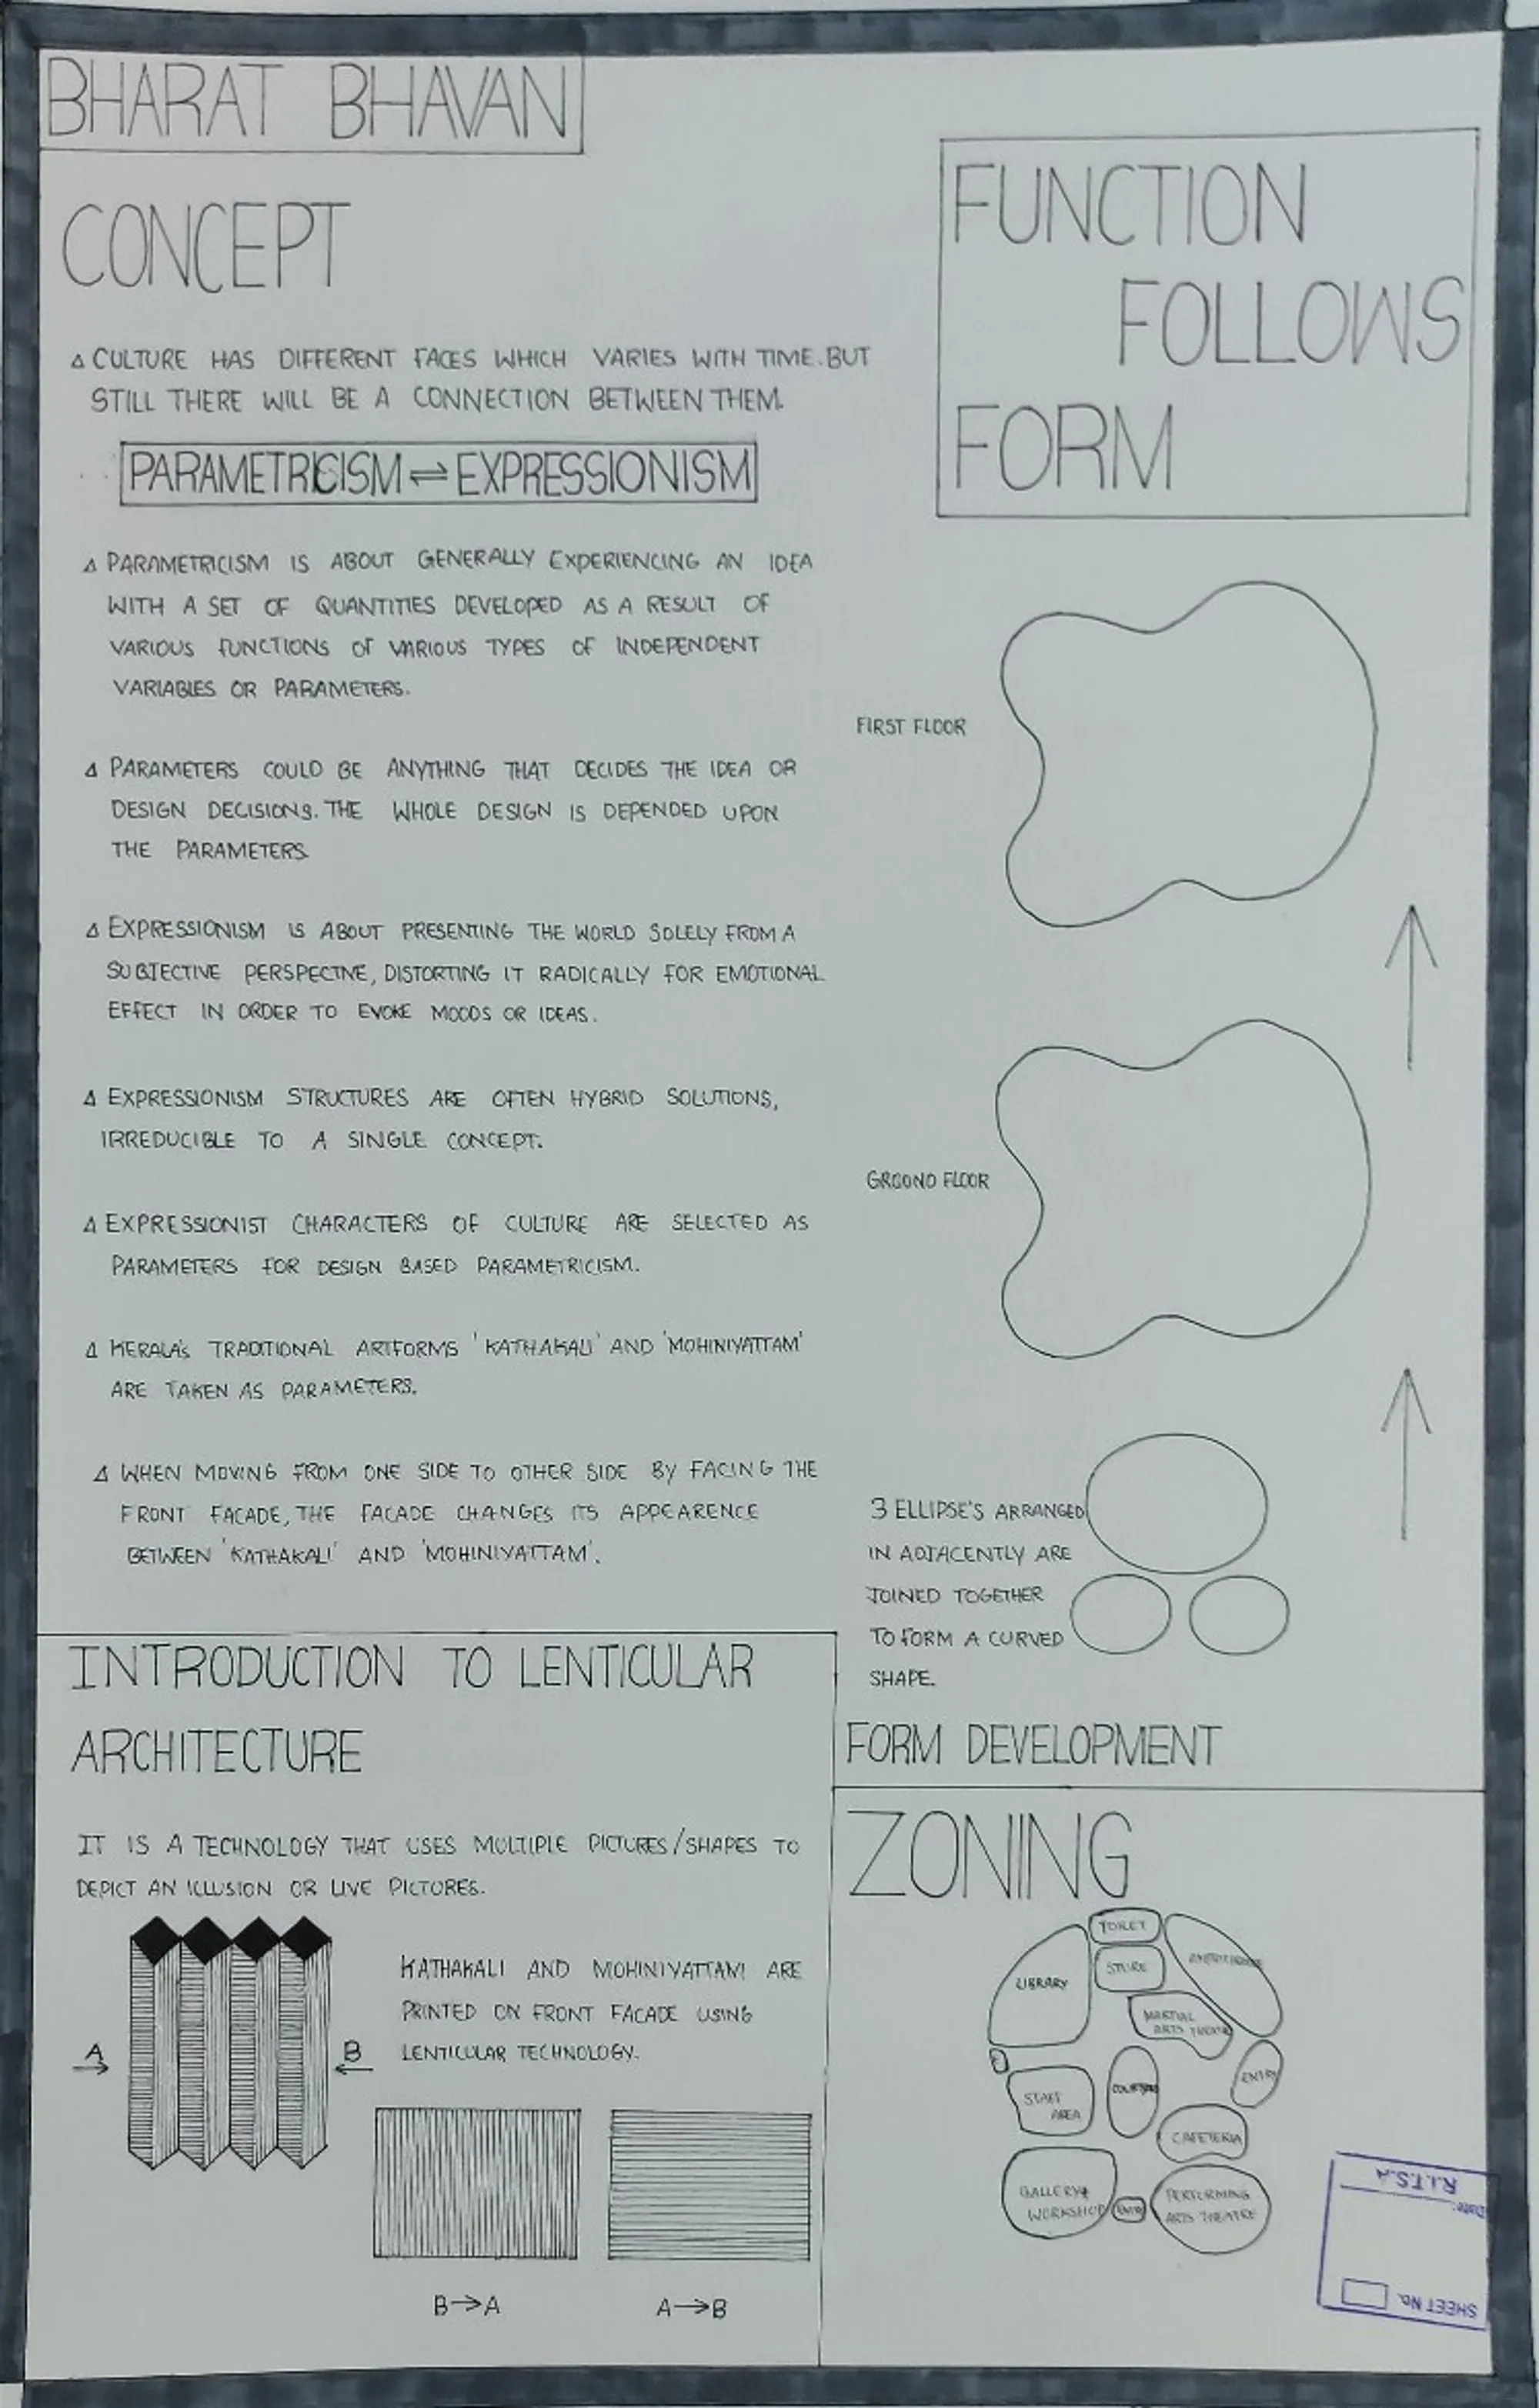 BHARAT BHAVAN
CONCEPT
∆ CULTURE HAS DIFFERENT FACES WHICH VARIES WITH TIME. BUT
STILL THERE WILL BE A CONNECTION BETWEEN THEM.
PARAMETRICISM ⇌ EXPRESSIONISM
∆ PARAMETRICISM IS ABOUT GENERALLY EXPERIENCING AN IDEA
WITH A SET OF QUANTITIES DEVELOPED AS A RESULT OF
VARIOUS FUNCTIONS OF VARIOUS TYPES OF INDEPENDENT
VARIABLES OR PARAMETERS.
∆ PARAMETERS COULD BE ANYTHING THAT DECIDES THE IDEA OR
DESIGN DECISIONS. THE WHOLE DESIGN IS DEPENDED UPON
THE PARAMETERS
∆ EXPRESSIONISM IS ABOUT PRESENTING THE WORLD SOLELY FROM A
SUBJECTIVE PERSPECTIVE, DISTORTING IT RADICALLY FOR EMOTIONAL
EFFECT IN ORDER TO EVOKE MOODS OR IDEAS.
∆ EXPRESSIONISM STRUCTURES ARE OFTEN HYBRID SOLUTIONS,
IRREDUCIBLE TO A SINGLE CONCEPT.
∆ EXPRESSIONIST CHARACTERS OF CULTURE ARE SELECTED AS
PARAMETERS FOR DESIGN BASED PARAMETRICISM.
∆ KERALA's TRADITIONAL ARTFORMS 'KATHAKALI' AND 'MOHINIYATTAM'
ARE TAKEN AS PARAMETERS.
∆ WHEN MOVING FROM ONE SIDE TO OTHER SIDE BY FACING THE
FRONT FACADE, THE FACADE CHANGES ITS APPEARENCE
BETWEEN 'KATHAKALI' AND 'MOHINIYATTAM'.
FUNCTION
FOLLOWS
FORM
FIRST FLOOR
GROUND FLOOR
3 ELLIPSE'S ARRANGED
IN ADJACENTLY ARE
JOINED TOGETHER
TO FORM A CURVED
SHAPE.
FORM DEVELOPMENT
INTRODUCTION TO LENTICULAR
ARCHITECTURE
IT IS A TECHNOLOGY THAT USES MULTIPLE PICTURES/SHAPES TO
DEPICT AN ILLUSION OR LIVE PICTURES.
KATHAKALI AND MOHINIYATTAM ARE
PRINTED ON FRONT FACADE USING
LENTICULAR TECHNOLOGY.
A
B
B→A
A→B
ZONING
TOILET
LIBRARY
STORE
MARTIAL
ARTS THEATRE
ENTRY
STAFF
AREA
COURTYARD
CAFETERIA
GALLERY+
WORKSHOP
ENTRY
PERFORMING
ARTS THEATRE
R.I.T.S.A
Date:
SHEET No.